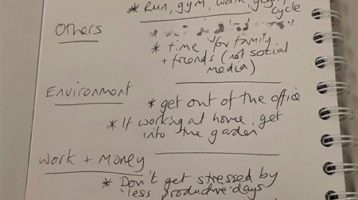 * Run, gym, walk, yoga, cycle
Others
* time for family
+ friends (not social
media)
Environment
* get out of the office
* If working at home, get
into the garden
Work + Money
* Don't get stressed by
'less productive' days